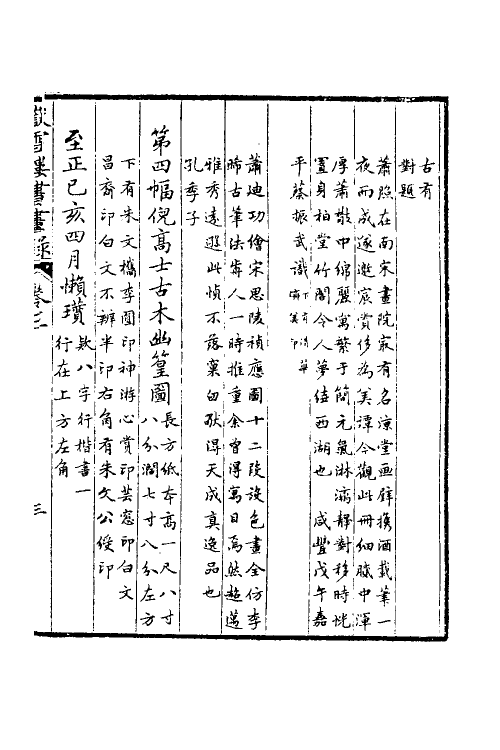 古有
對題
蕭照在南宋畫院最有名涼堂画壁攜酒載筆一
夜而成遂邀宸賞侈為美譚今觀此冊細膩中渾
厚蕭散中綿麗寓繁于簡元氣淋漓靜對移時恍
置身柏堂竹閣令人夢徒西湖也 咸豐戊午嘉
平蔡振武識
蕭廸功繪宋思陵禎應圖十二段設色畫全仿李
晞古筆法當人一時推重余曾得寓目焉然超邁
雅秀遠遜此幀不落窠臼弥得天成真逸品也
孔季子
第四幅倪髙士古木幽篁圖長方紙本髙一尺八寸
八分濶七寸八分左方
下有朱文檇李圓印神游心賞印芸窓印白文
昌齋印白文不辨半印右角有朱文公綬印
至正己亥四月懶瓚款八字行楷書一
行在上方左角
嶽雪樓書畫錄 卷三 三